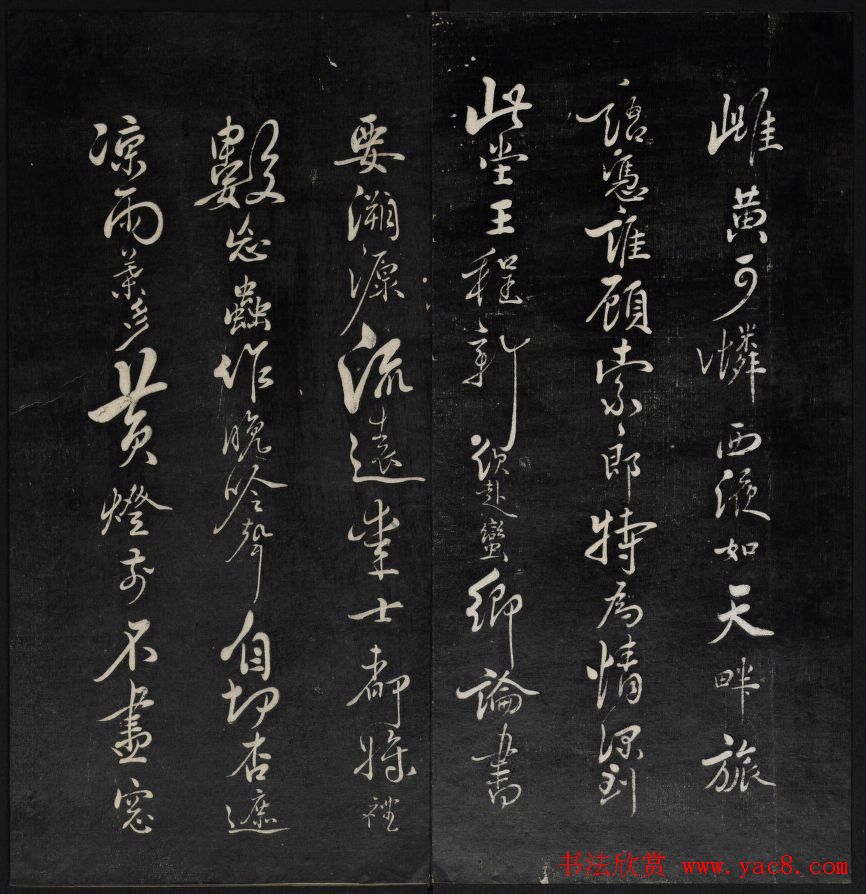 雌黄可憐西液如天畔旅
語憑誰顧索郎特為情深到
此堂王程新須赴蠻鄉論書
要溯源流遠業士都將禮
數忘蟲作晚吟聲自切杏遮
凉雨葉多黄燈前不盡窓
书法欣赏 www.yac8.com